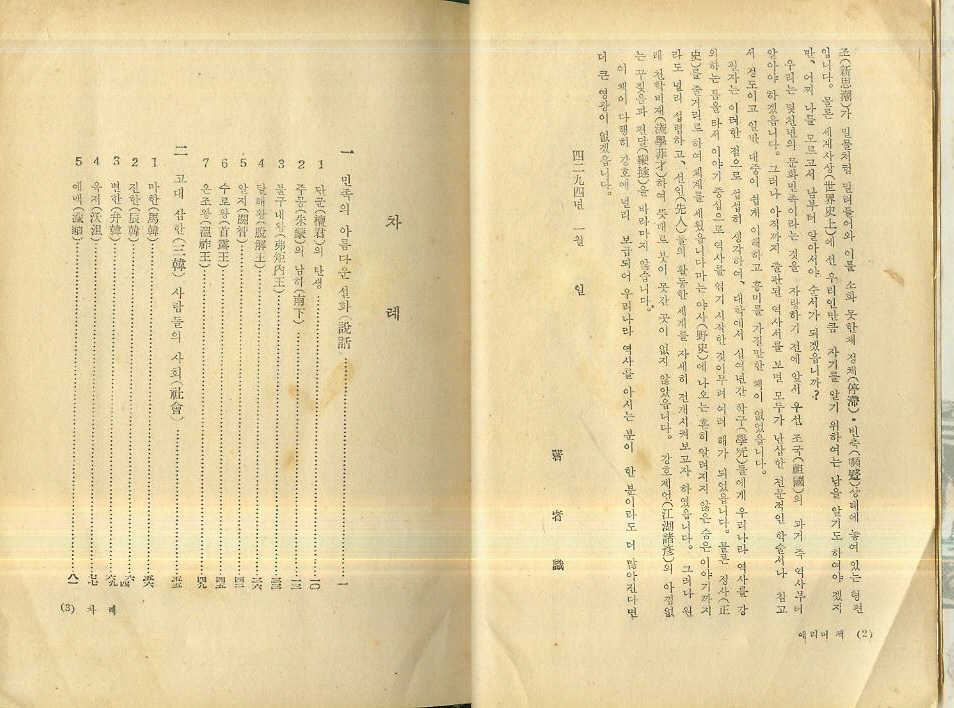 조(新思潮)가 밀물처럼 밀려들어와 이를 소화 못한채 정체(停滯)•빈축(嚬蹙)상태에 놓여 있는 형편
입니다. 물론 세계사상(世界史上)에 선 우리인만큼 자기를 알기 위하여는 남을 알기도 하여야 겠지
만, 어찌 나를 모르고서 남부터 알아서야 순서가 되겠읍니까?
우리는 몇천년의 문화민족이라는 것을 자랑하기 전에 앞서 우선 조국(祖國)의 과거 즉 역사부터
알아야 하겠읍니다. 그러나 아직까지 출판된 역사서를 보면 모두가 난삽한 전문적인 학술서나 참고
서 정도이고 일반 대중이 쉽게 이해하고 흥미를 가질만한 책이 없었읍니다.
필자는 이러한 점으로 섭섭히 생각하여, 대학에서 십여년간 학구(學究)들에게 우리나라 역사를 강
의하는 틈을 타서 이야기 중심으로 역사를 엮기 시작한 것이무려 여러 해가 되었읍니다. 물론 정사(正
史)를 줄거리로 하여 체계를 세웠읍니다마는 야사(野史)에 나오는 흔히 알려지지 않은 숨은 이야기까지
라도 널리 섭렵하고, 선인(先人)들의 활동한 세계를 자세히 전개시켜보고자 하였읍니다. 그러나 원
래 천학비재(淺學菲才)하여 뜻대로 붓이 못간 곳이 없지 않았읍니다. 강호제언(江湖諸彦)의 아낌없
는 꾸짖음과 편달(鞭撻)을 바라마지 않습니다.
이 책이 다행히 강호에 널리 보급되어 우리나라 역사를 아시는 분이 한 분이라도 더 많아진다면
더 큰 영광이 없겠읍니다.
四二九四년 一월 일
著者 識
머리머 책 (2)
차 례
一 민족의 아름다운 설화(說話)……一
1 단군(檀君)의 탄생……一〇
2 주몽(朱蒙)의 남하(南下)……二三
3 불구내왕(弗矩內王)……三三
4 탈해왕(脫解王)……三六
5 알지(閼智)……四三
6 수로왕(首露王)……四五
7 온조왕(溫祚王)……四九
二 고대 삼한(三韓) 사람들의 사회(社會)……五五
1 마한(馬韓)……五六
2 진한(辰韓)……六四
3 변한(弁韓)……六九
4 옥저(沃沮)……七七
5 예맥(濊貊)……八一
(3) 차 례